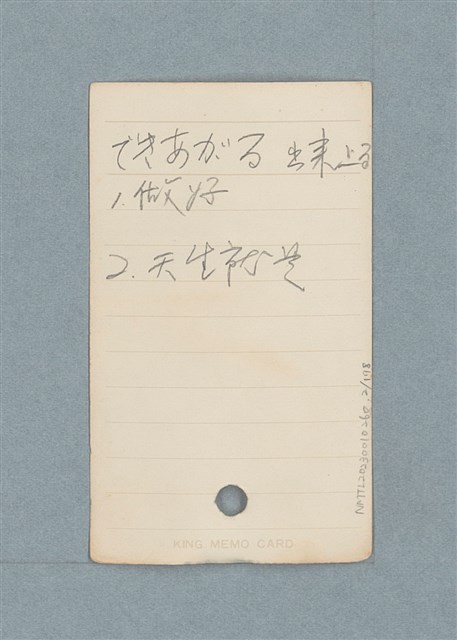 できあがる 出来上る
1. 做好
2. 天生就是
KING MEMO CARD
NMTL20230010268-2/178